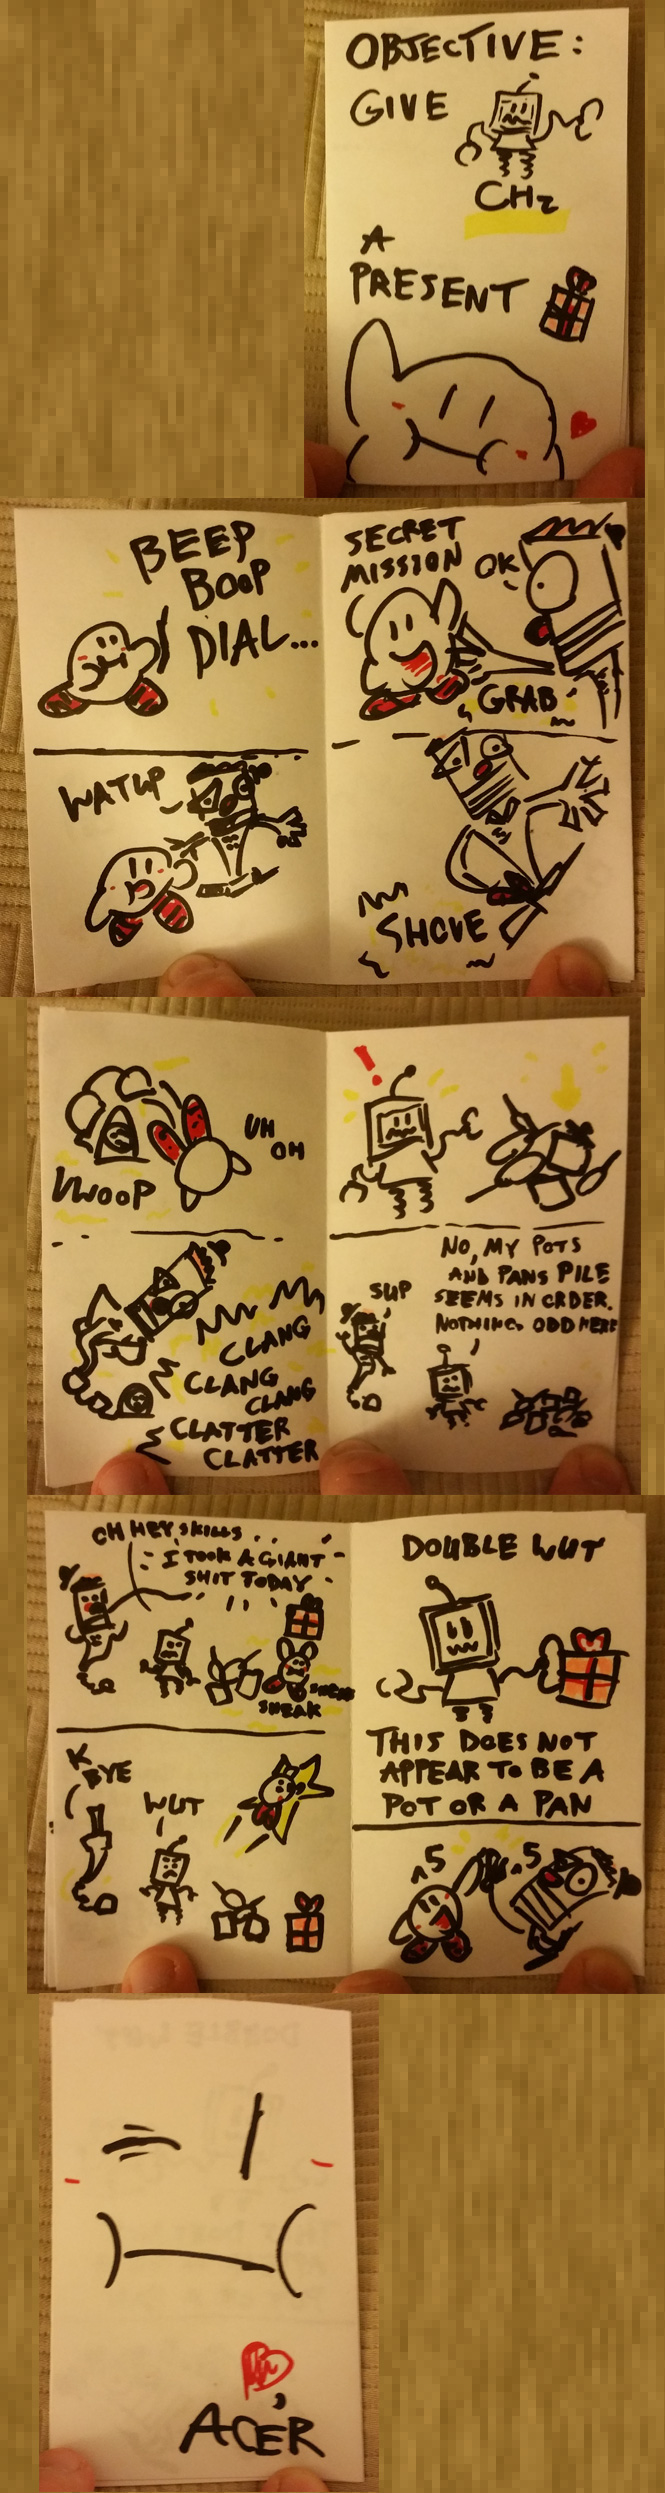 OBJECTIVE:
GIVE
CHZ
A
PRESENT
BEEP
BOOP
DIAL...
WATUP
SECRET
MISSION
OK
GRAB
SHOVE
VWOOP
UH
OH
CLANG
CLANG
CLANG
CLATTER
CLATTER
!
SUP
NO, MY POTS
AND PANS PILE
SEEMS IN ORDER.
NOTHING ODD HERE
OH HEY SKILLS...
I TOOK A GIANT
SHIT TODAY
SNEAK
SNEAK
K
BYE
WUT
DOUBLE WUT
THIS DOES NOT
APPEAR TO BE A
POT OR A PAN
^5
^5
ACER